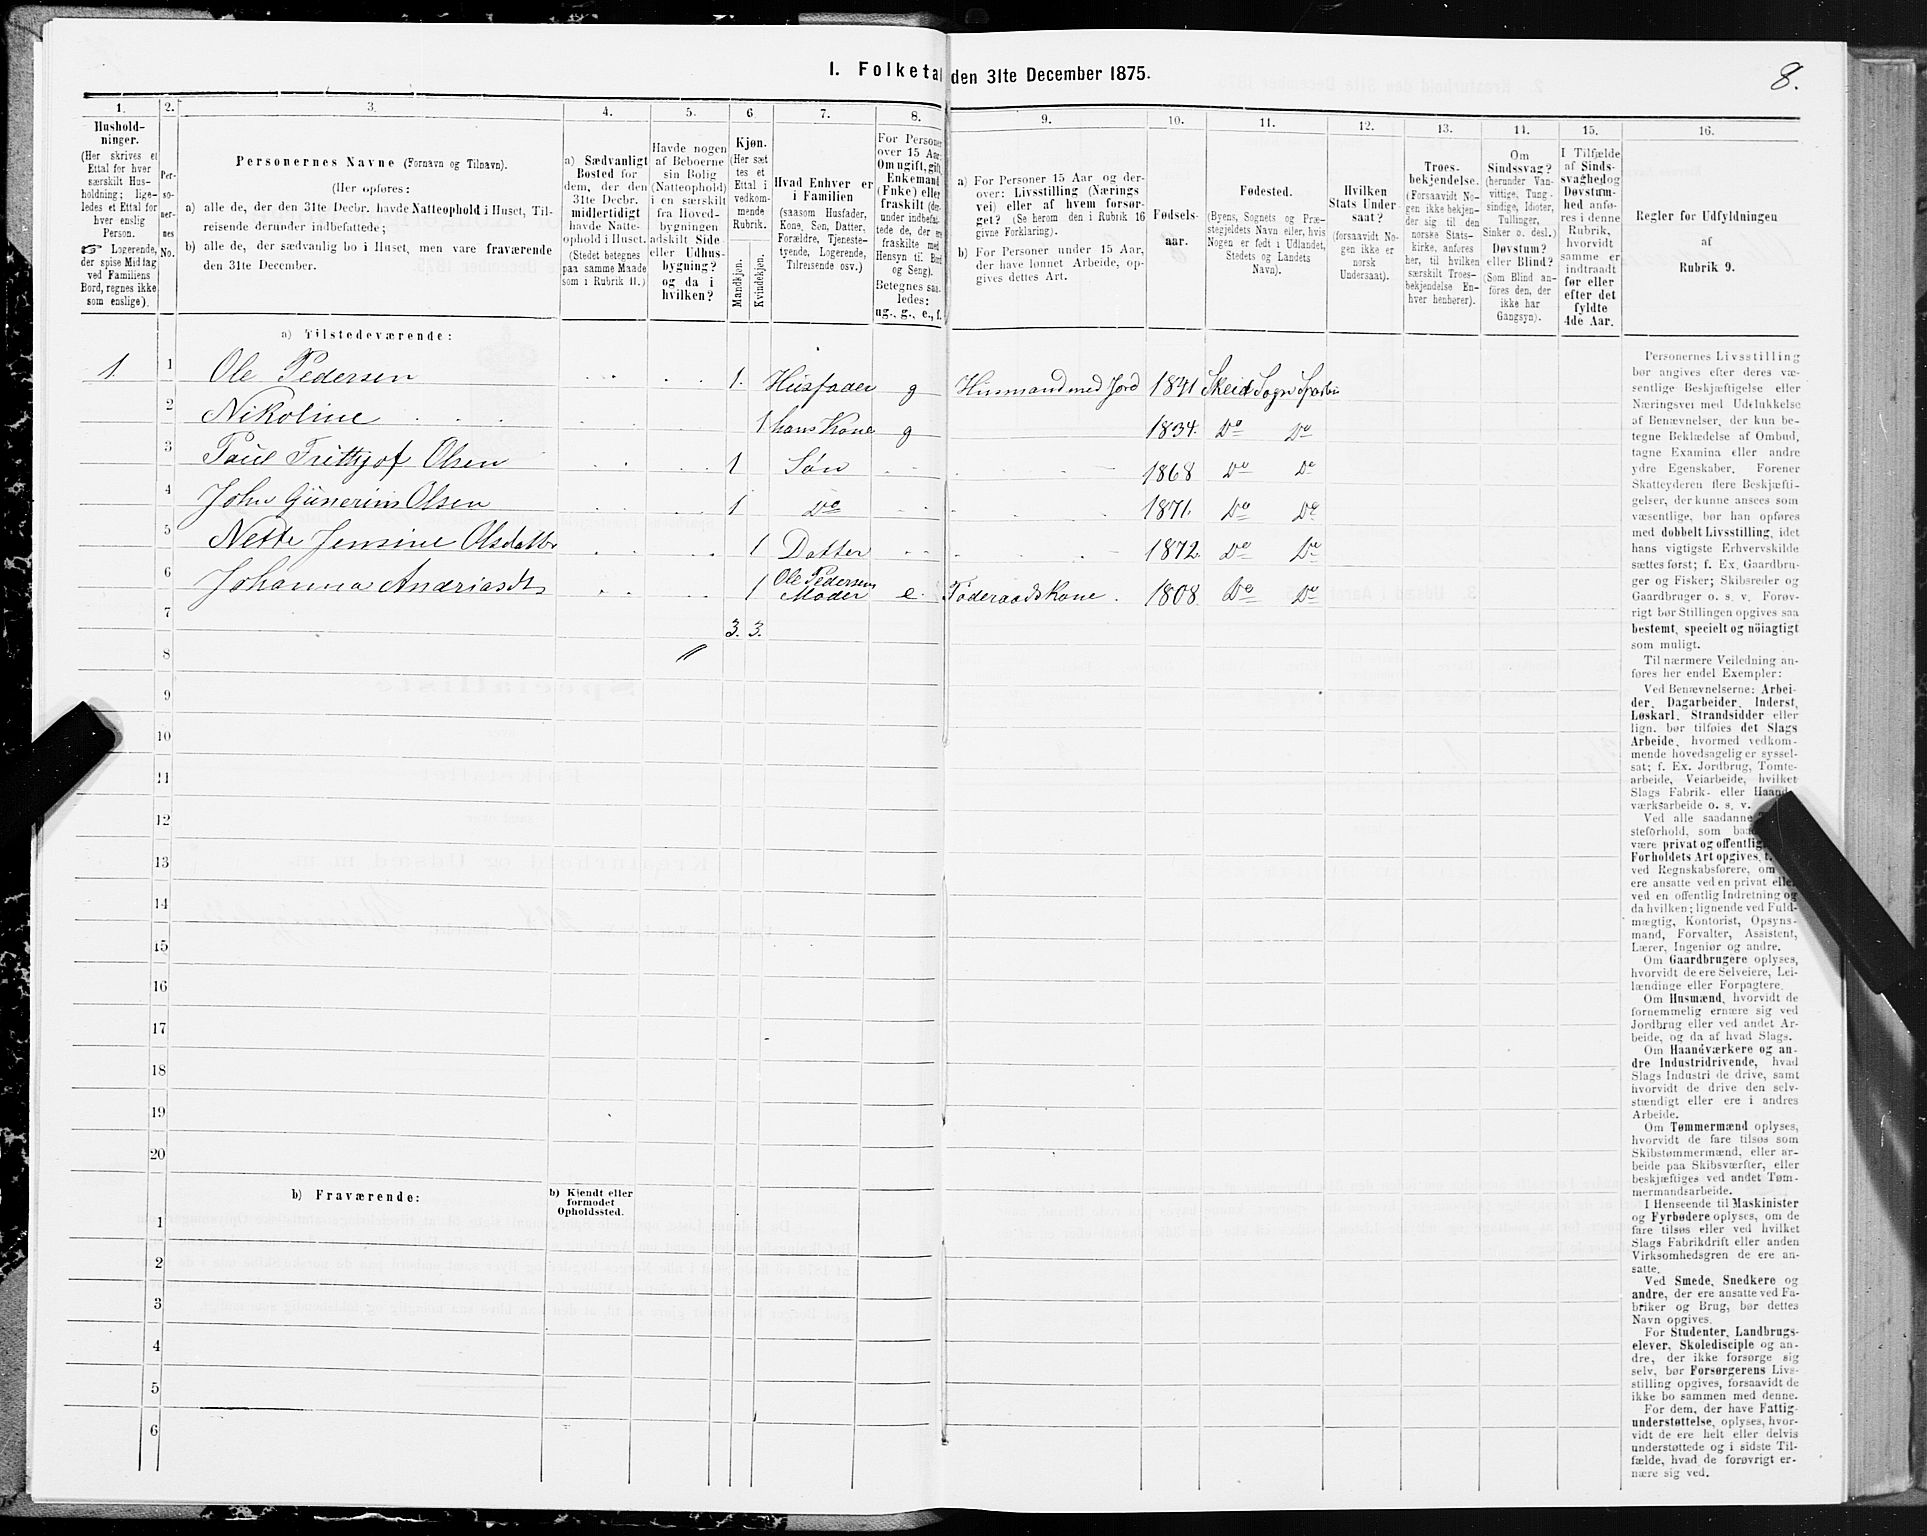 I. Folketal den 31te December 1875.
8.
1.
Hushold-
ninger.
(Her skrives et
Ettal for hver
særskilt Hus-
holdning; lige-
ledes et Ettal for
hver enslig
Person.
☞ Logerende,
der spise Middag
ved Familiens
Bord, regnes ikke
som enslige).
2.
Per-
so-
ner-
nes
No.
3.
Personernes Navne (Fornavn og Tilnavn).
(Her opføres:
a) alle de, der den 31te Decbr. havde Natteophold i Huset, Til-
reisende derunder indbefattede;
b) alle de, der sædvanlig bo i Huset, men vare fraværende
den 31te December.
4.
a) Sædvanligt
Bosted for
dem, der den
31te Decbr.
midlertidigt
havde Natte-
ophold i Huset.
(Stedet betegnes
paa samme Maade
som i Rubrik 11.)
5.
Havde nogen
af Beboerne
sin Bolig
(Natteophold)
i en særskilt
fra Hoved-
bygningen
adskilt Side-
eller Udhus-
bygning?
og da i
hvilken?
6
Kjøn.
(Her sæt
tes et
Ettal i
vedkom-
mende
Rubrik.
Mandkjøn.
Kvindekjøn.
7.
Hvad Enhver er
i Familien
(saasom Husfader,
Kone, Søn, Datter,
Forældre, Tjeneste-
tyende, Logerende,
Tilreisende osv.)
8.
For Personer
over 15 Aar:
Om ugift, gift,
Enkemand
(Enke) eller
fraskilt (der-
under indbefat-
tede de, der ere
fraskilte med
Hensyn til Bord
og Seng).
Betegnes saa-
ledes:
ug., g., e., f.
9.
a) For Personer 15 Aar og der-
over: Livsstilling (Nærings
vei) eller af hvem forsør-
get? (Se herom den i Rubrik 16
givne Forklaring).
b) For Personer under 15 Aar,
der have lønnet Arbeide, op-
gives dettes Art.
10.
Fødsels-
aar.
11.
Fødested.
(Byens, Sognets og Præ-
stegjeldets Navn eller, hvis
Nogen er født i Udlandet,
Stedets og Landets
Navn).
12.
Hvilken
Stats Under-
saat?
(forsaavidt No-
gen ikke er
norsk
Undersaat).
13.
Troes-
bekjendelse.
(Forsaavidt No-
gen ikke bekjen-
der sig til den
norske Stats-
kirke, anføres
her, til hvilken
særskilt Troes-
bekjendelse En-
hver henhører).
14.
Om
Sindssvag?
(herunder Van-
vittige, Tung-
sindige, Idioter,
Tullinger,
Sinker o. desl.)
Døvstum?
eller Blind?
(Som Blind an-
føres den, der
ikke har
Gangsyn).
15.
I Tilfælde
af Sinds-
svaghed og
Døvstum-
hed anfø-
res i denne
Rubrik,
hvorvidt
samme er
indtraadt
før eller
efter det
fyldte
4de Aar.
16.
Regler for Udfyldningen
af
Rubrik 9.
a) Tilstedeværende:
1. 1 Ole Pedersen 1. Husfader g Husmand med Jord 1841 Skeid Sogn Sparbu
2 Nikoline 1 hans Kone g 1834. Do Do
3 Paul Frithjof Olsen 1 Søn 1868 Do Do
4 John Gunerius Olsen 1 Do 1871. Do Do
5 Nette Jensine Olsdatter 1 Datter 1872. Do Do
6 Johanna Andriasdt 1 Ole Pedersens Moder e. Føderaadskone. 1808. Do Do
7 3. 3.
8
9
10
11
12
13
14
15
16
17
18
19
20
b) Fraværende:
b) Kjendt eller
formodet
Opholdssted.
1
2
3
4
5
6
Personernes Livsstilling
bør angives efter deres væ-
sentlige Beskjæftigelse eller
Næringsvei med Udelukkelse
af Benævnelser, der kun be-
tegne Beklædelse af Ombud,
tagne Examina eller andre
ydre Egenskaber. Forener
Skatteyderen flere Beskjæfti-
gelser, der kunne ansees som
væsentlige, bør han opføres
med dobbelt Livsstilling, idet
hans vigtigste Erhvervskilde
sættes først; f. Ex. Gaardbru-
ger og Fisker; Skibsreder og
Gaardbruger o. s. v. Forøv-
rigt bør Stillingen opgives saa
bestemt, specielt og nöiagtigt
som muligt.
Til nærmere Veiledning an-
føres her endel Exempler:
Ved Benævnelserne: Arbei-
der, Dagarbeider, Inderst,
Løskarl, Strandsidder eller
lign. bør tilføies det Slags
Arbeide, hvormed vedkom-
mende hovedsagelig er syssel-
sat; f. Ex. Jordbrug, Tomte-
arbeide, Veiarbeide, hvilket
Slags Fabrik- eller Haand-
værksarbeide o. s. v.
Ved alle saadanne
steforhold, som baade
være privat og offentlig,
Forholdets Art opgives, t.
ved Regnskabsførere, om
ere ansatte ved en privat eller
ved en offentlig Indretning og
da hvilken; lignende ved Fuld-
mægtig, Kontorist, Opsyns-
mand, Forvalter, Assistent,
Lærer, Ingeniør og andre.
Om Gaardbrugere oplyses,
hvorvidt de ere Selveiere, Lei-
lændinge eller Forpagtere.
Om Husmænd, hvorvidt de
fornemmelig ernære sig ved
Jordbrug eller ved andet Ar-
beide, og da af hvad Slags.
Om Haandværkere og an-
dre Industridrivende, hvad
Slags Industri de drive, samt
hvorvidt de drive den selv-
stændigt eller ere i andres
Arbeide.
Om Tømmermænd oplyses,
hvorvidt de fare tilsøs som
Skibstømmermænd, eller ar-
beide paa Skibsværfter, eller
beskjæftiges ved andet Tøm-
mermandsarbeide.
I Henseende til Maskinister
og Fyrbødere oplyses, om de
fare tilsøs eller ved hvilket
Slags Fabrikdrift eller anden
Virksomhedsgren de ere an-
satte.
Ved Smede, Snedkere og
andre, der ere ansatte ved Fa-
briker og Brug, bør dettes
Navn opgives.
For Studenter, Landbrugs-
elever, Skoledisciple og an-
dre, der ikke forsørge sig
selv, bør Forsørgerens Livs-
stilling opgives, forsaavidt de
ikke bo sammen med denne.
For dem, der have Fattig-
understøttelse, oplyses, hvor-
vidt de ere helt eller delvis
understøttede og i sidste Til-
fælde, hvad de forøvrigt er-
nære sig ved.